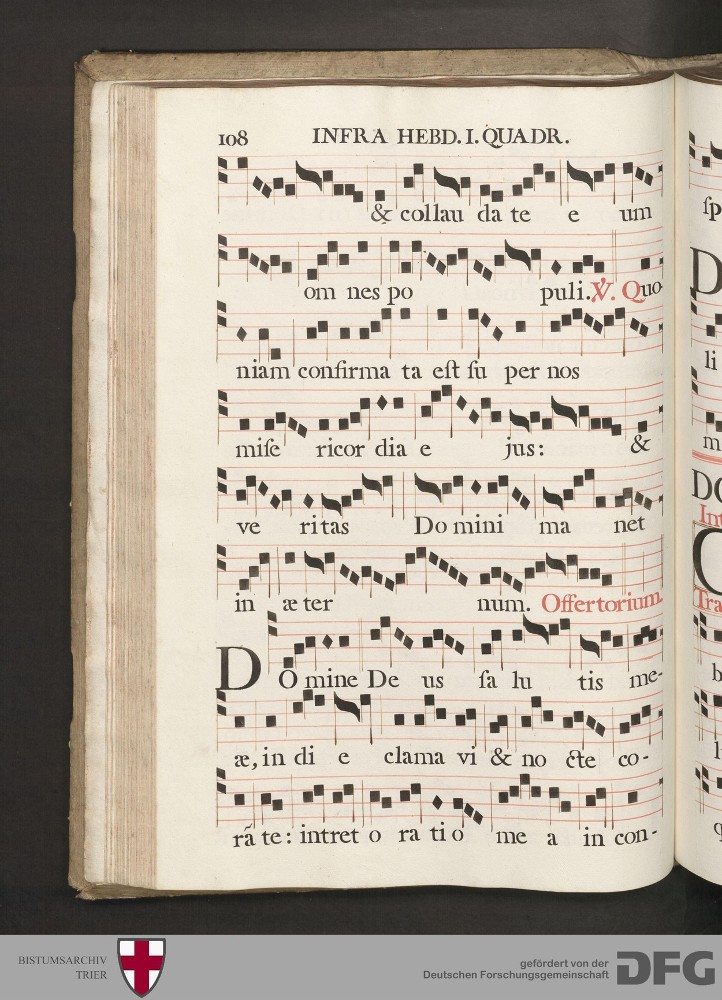 108 INFRA HEBD. I. QUADR.
& collau da te e um
om nes po puli. ℣. Quo-
niam confirma ta eſt ſu per nos
miſe ricor dia e jus: &
ve ritas Do mini ma net
in æ ter num. Offertorium.
DO mine De us ſa lu tis me-
æ, in di e clama vi & no cte co-
rã te: intret o ra ti o me a in con-
ſp
D
li
m
DO
Int
C
Tra
b
l
q
BISTUMSARCHIV
TRIER
gefördert von der
Deutschen Forschungsgemeinschaft
DFG